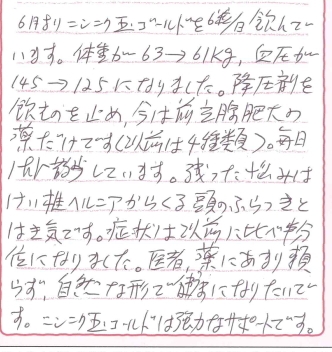 6月よりニンニク玉ゴールドを6粒/日飲んで
います。体重が63→61kg, 血圧が
145→125になりました。降圧剤を
飲むのを止め, 今は前立腺肥大の
薬だけです(以前は4種類)。毎日
1時間散歩しています。残った悩みは
けい椎ヘルニアからくる頭のふらつきと
は走気です。症状は以前に比べ半分
位になりました。医者, 薬にあまり頼
らず, 自然な形で健康になりたいで
す。ニンニク玉ゴールドは強力なサポートです。